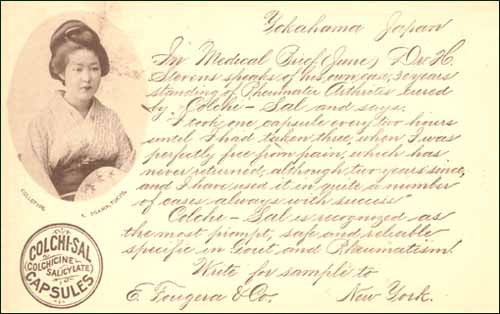 Yokahama Japan
In Medical Brief (June) Dr. H.
Stevens speaks of his own case; 30 years
standing of Rheumatic Arthritis cured
by Colchi-Sal and says:
"I took one capsule every two hours
until I had taken three, when I was
perfectly free from pain, which has
never returned, although two years since,
and I have used it in quite a number
of cases always with success"
Colchi-Sal is recognized as
the most prompt, safe and reliable
specific in Gout and Rheumatism.
Write for sample to
E. Fougera & Co. New York.
COLLOTYPE.
K. OGAWA, TOKYO.
COLCHI-SAL
(COLCHICINE
SALICYLATE)
CAPSULES